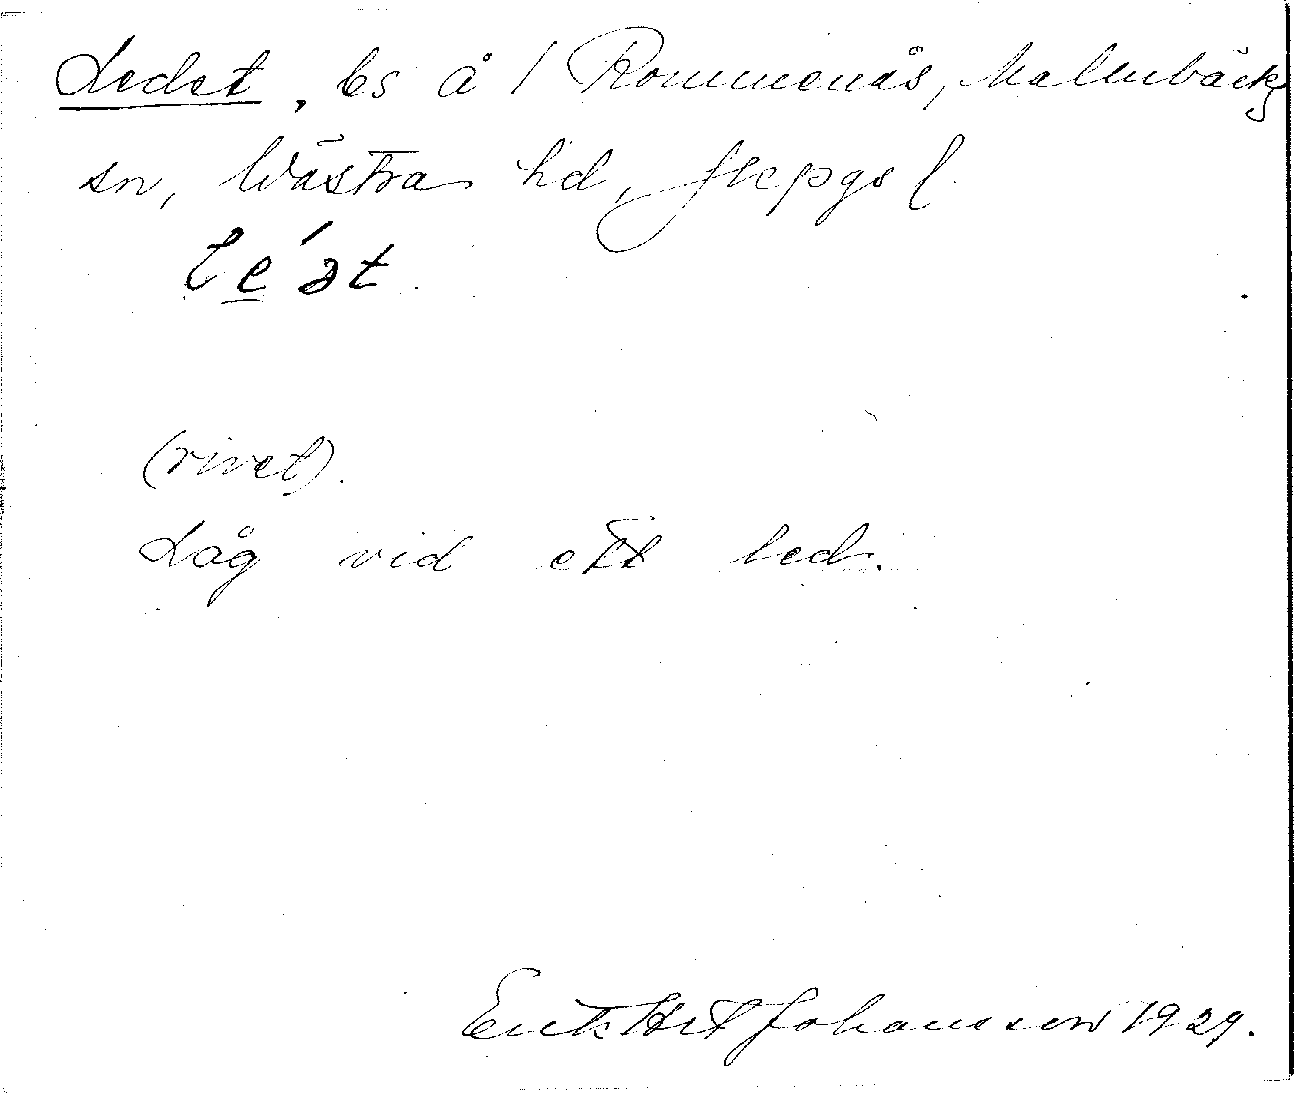 Ledet, bs å / Rommenäs, Malmbäcks
sn, Västra hd, Jkpgs l.
le´ət.
(rivet).
Låg vid ett led.
Erik Johansson 1929.